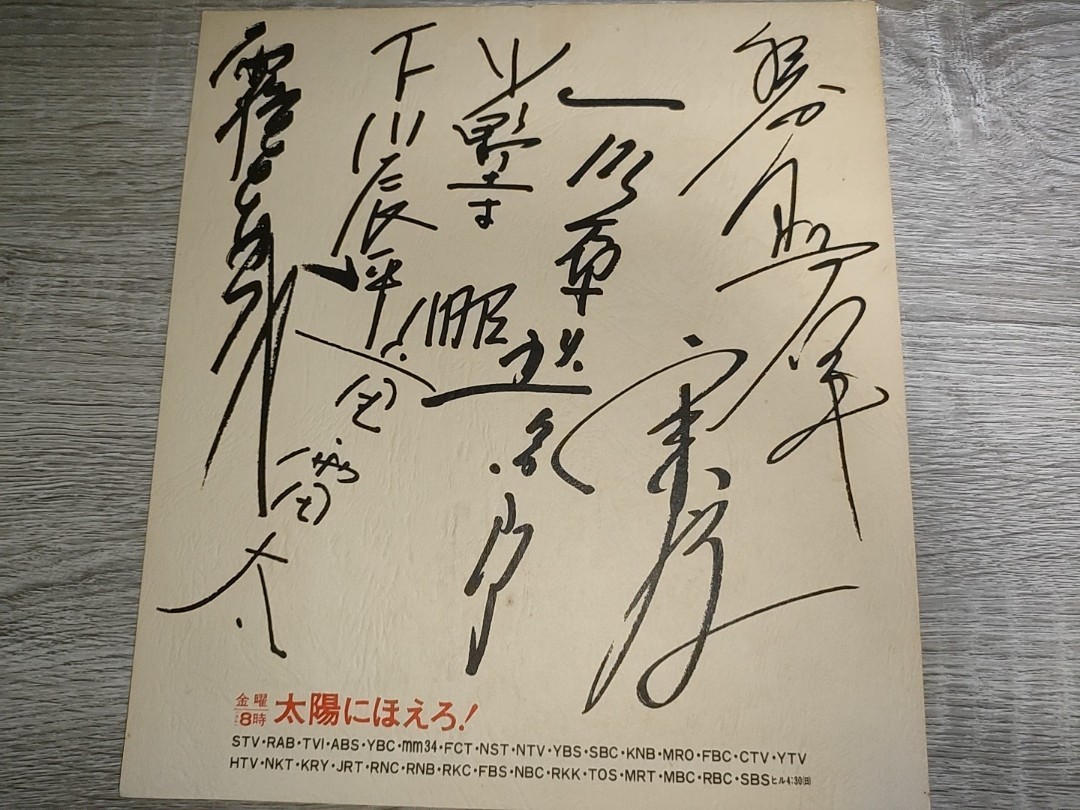 石原裕次郎
小野寺昭
下川辰平
竜雷太
露口茂
金曜
8時
太陽にほえろ!
STV・RAB・TVI・ABS・YBC・mm34・FCT・NST・NTV・YBS・SBC・KNB・MRO・FBC・CTV・YTV
HTV・NKT・KRY・JRT・RNC・RNB・RKC・FBS・NBC・RKK・TOS・MRT・MBC・RBC・SBSヒル4:30(日)